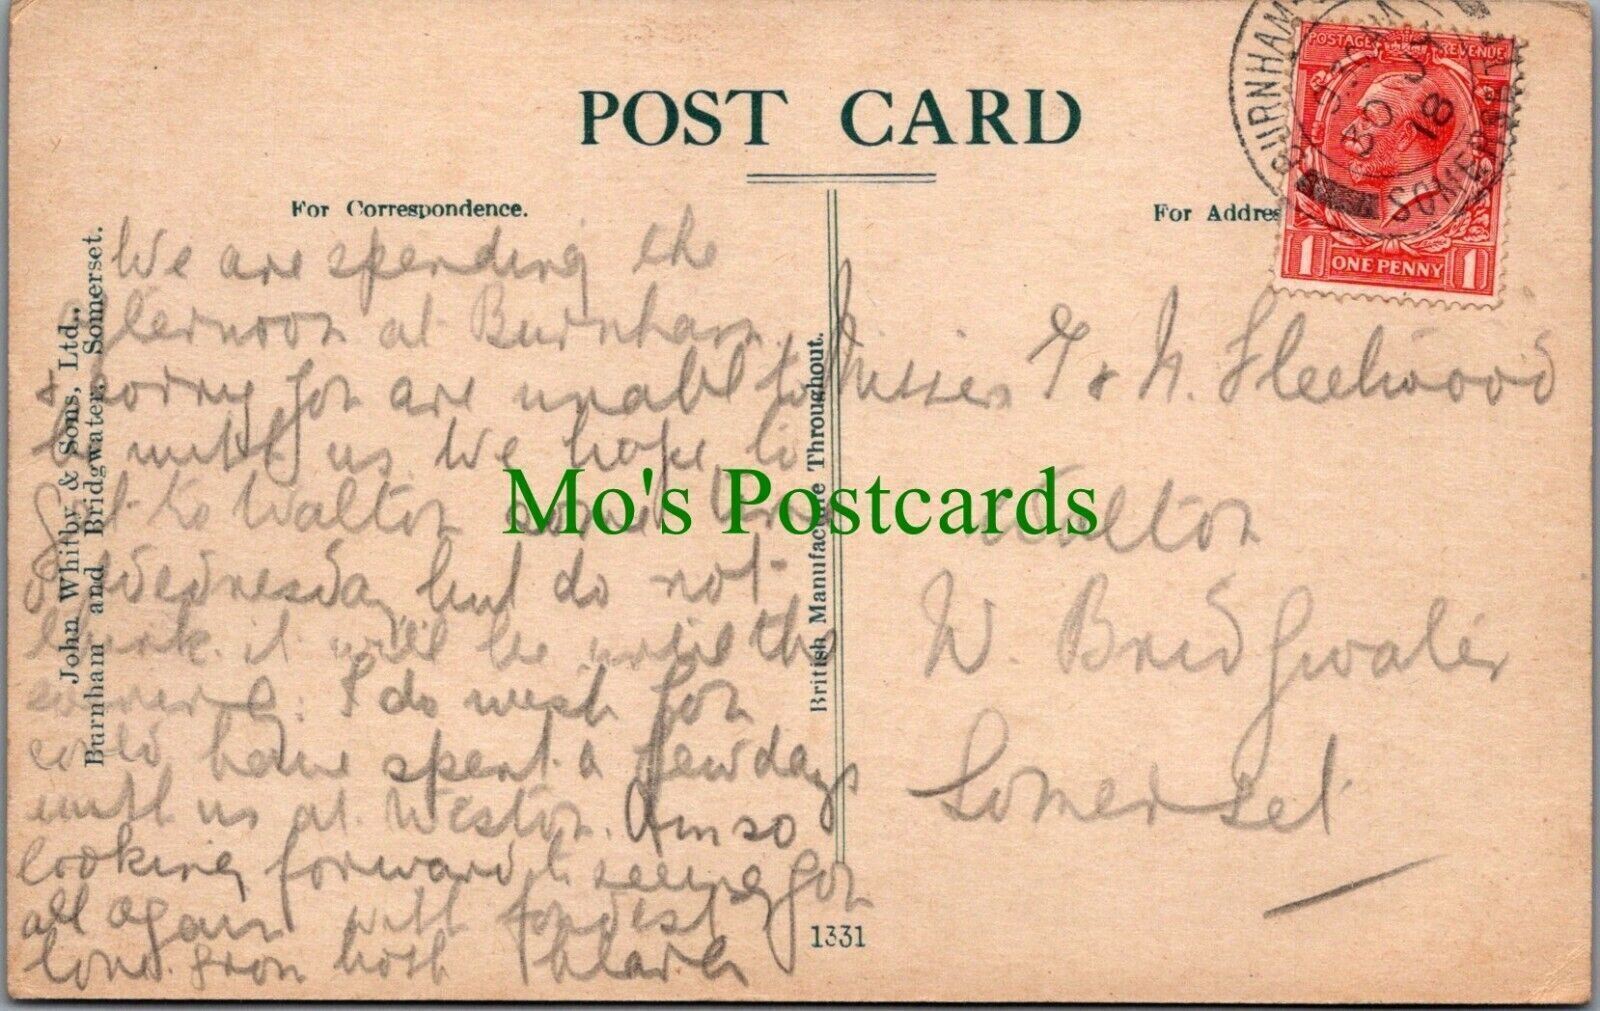 POST CARD
For Correspondence.
For Addre
BURNHAM
SOMERSET
30
18
POSTAGE REVENUE
1 ONE PENNY 1
John Whitby & Sons, Ltd.,
Burnham and Bridgwater, Somerset.
British Manufacture Throughout.
We are spending the
afternoon at Burnham
& sorry you are unable to
be with us. We hope to
get to Walton some time
on Wednesday but do not
think it will be until the
evening. I do wish you
could have spent a few days
with us at Weston. Am so
looking forward to seeing you
all again with fondest
love from both
Misses & N. Fleetwood
Walton
Nr. Bridgwater
Somerset
1331
Mo's Postcards